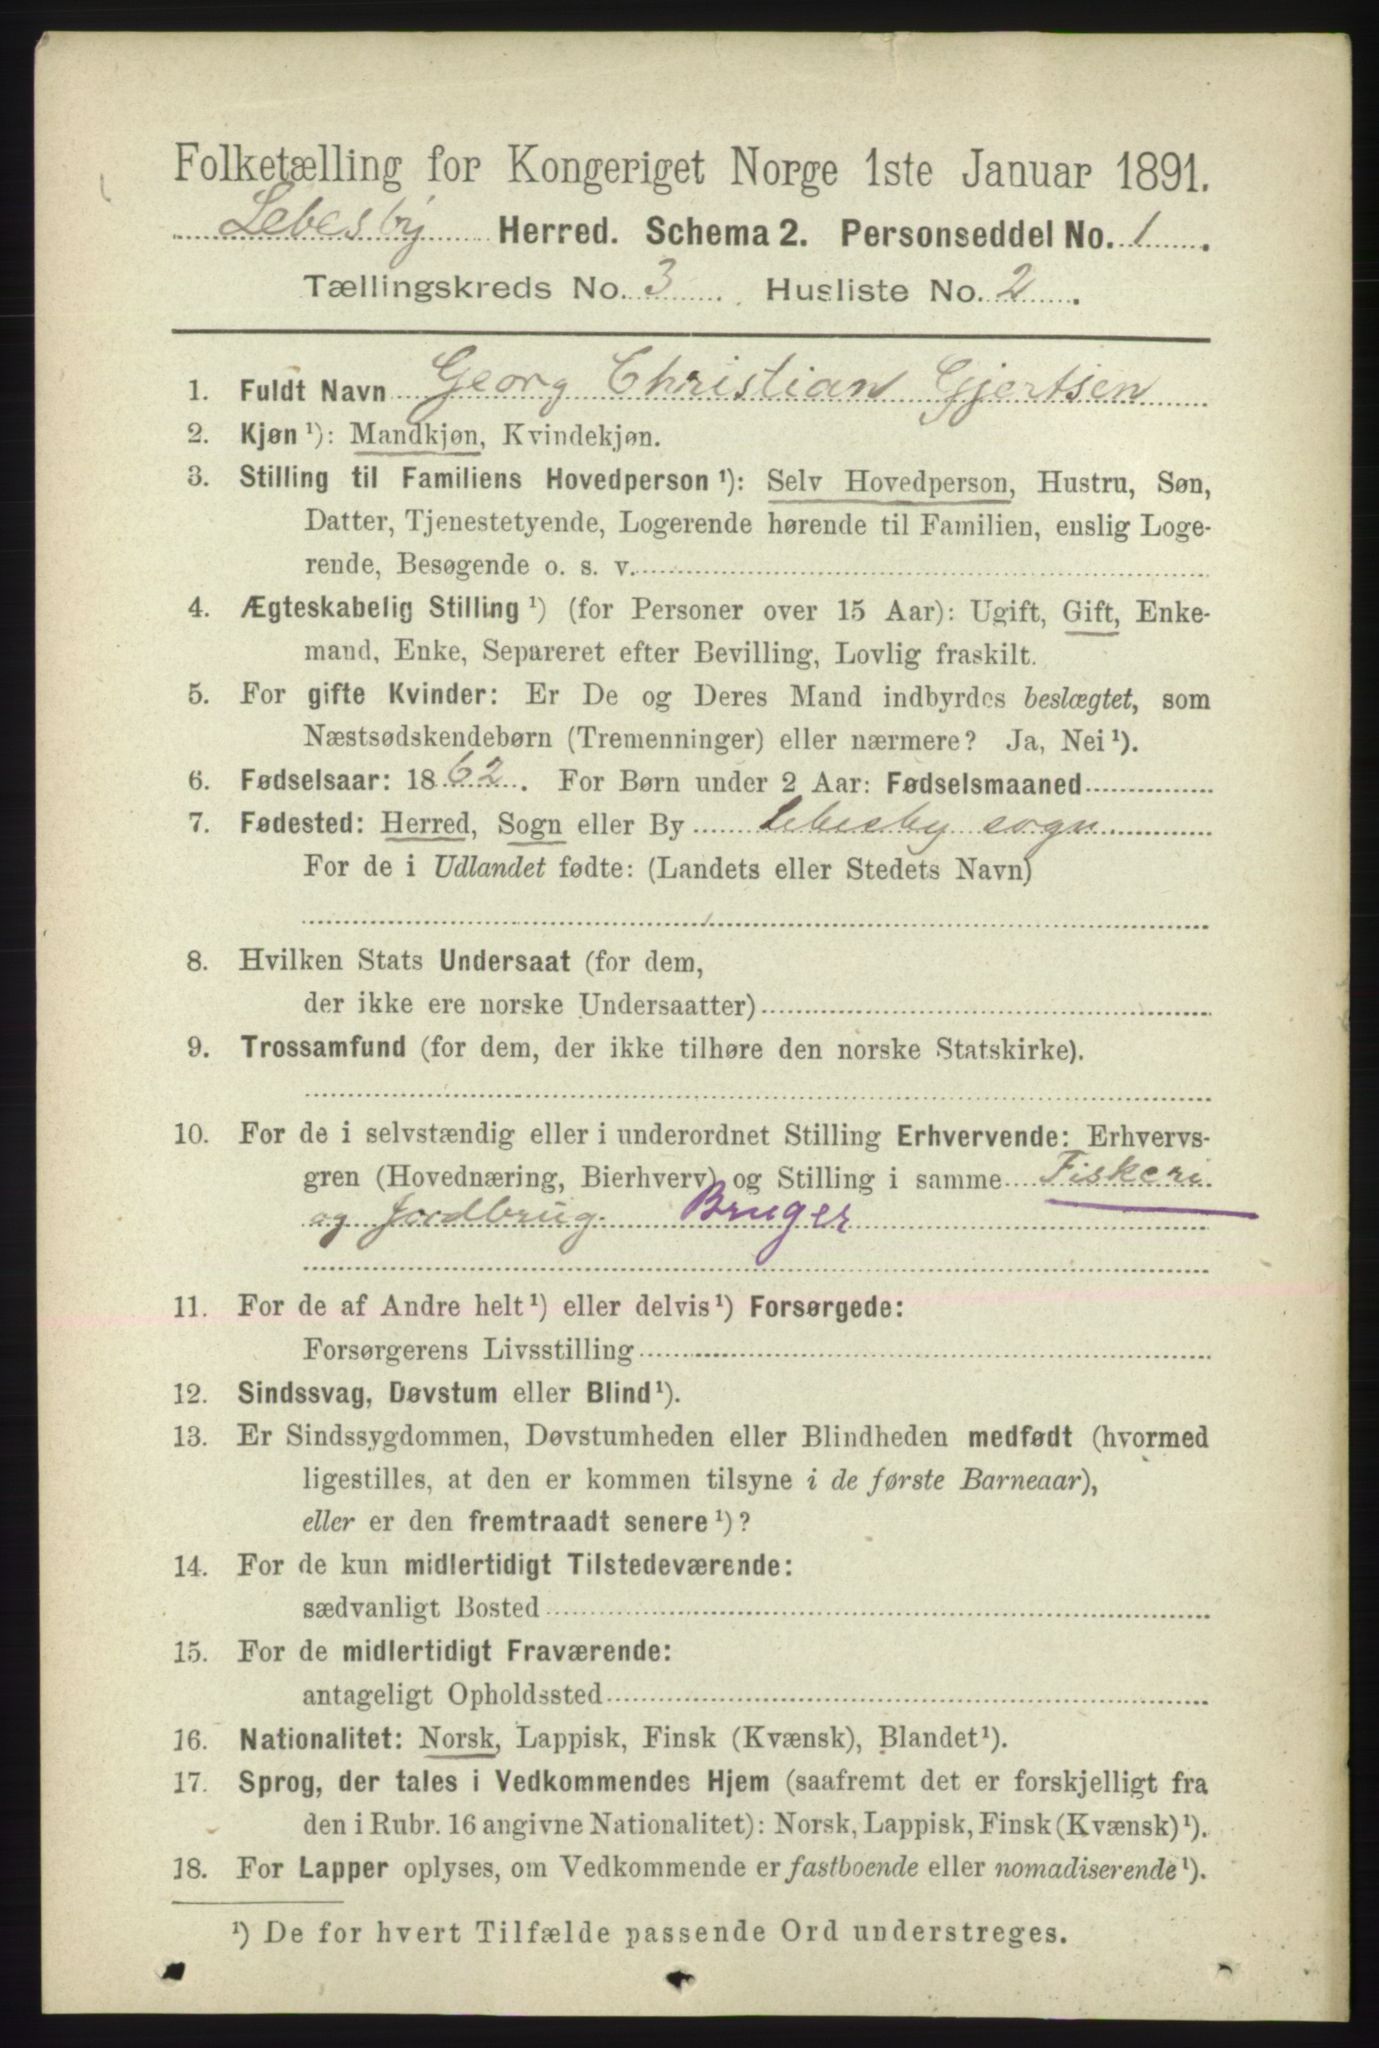 Folketælling for Kongeriget Norge 1ste Januar 1891.
Lebesby Herred. Schema 2. Personseddel No. 1.
Tællingskreds No. 3. Husliste No. 2.
1. Fuldt Navn Georg Christian Gjertsen
2. Kjøn ¹): Mandkjøn, Kvindekjøn.
3. Stilling til Familiens Hovedperson ¹): Selv Hovedperson, Hustru, Søn,
Datter, Tjenestetyende, Logerende hørende til Familien, enslig Loge-
rende, Besøgende o. s. v.
4. Ægteskabelig Stilling ¹) (for Personer over 15 Aar): Ugift, Gift, Enke-
mand, Enke, Separeret efter Bevilling, Lovlig fraskilt.
5. For gifte Kvinder: Er De og Deres Mand indbyrdes beslægtet, som
Næstsødskendebørn (Tremenninger) eller nærmere? Ja, Nei ¹).
6. Fødselsaar: 1862. For Børn under 2 Aar: Fødselsmaaned
7. Fødested: Herred, Sogn eller By Lebesby sogn
For de i Udlandet fødte: (Landets eller Stedets Navn)
8. Hvilken Stats Undersaat (for dem,
der ikke ere norske Undersaatter)
9. Trossamfund (for dem, der ikke tilhøre den norske Statskirke).
10. For de i selvstændig eller i underordnet Stilling Erhvervende: Erhvervs-
gren (Hovednæring, Bierhverv) og Stilling i samme Fiskeri
og Jordbrug. Bruger
11. For de af Andre helt ¹) eller delvis ¹) Forsørgede:
Forsørgerens Livsstilling
12. Sindssvag, Døvstum eller Blind ¹).
13. Er Sindssygdommen, Døvstumheden eller Blindheden medfødt (hvormed
ligestilles, at den er kommen tilsyne i de første Barneaar),
eller er den fremtraadt senere ¹)?
14. For de kun midlertidigt Tilstedeværende:
sædvanligt Bosted
15. For de midlertidigt Fraværende:
antageligt Opholdssted
16. Nationalitet: Norsk, Lappisk, Finsk (Kvænsk), Blandet ¹).
17. Sprog, der tales i Vedkommendes Hjem (saafremt det er forskjelligt fra
den i Rubr. 16 angivne Nationalitet): Norsk, Lappisk, Finsk (Kvænsk) ¹).
18. For Lapper oplyses, om Vedkommende er fastboende eller nomadiserende ¹).
¹) De for hvert Tilfælde passende Ord understreges.